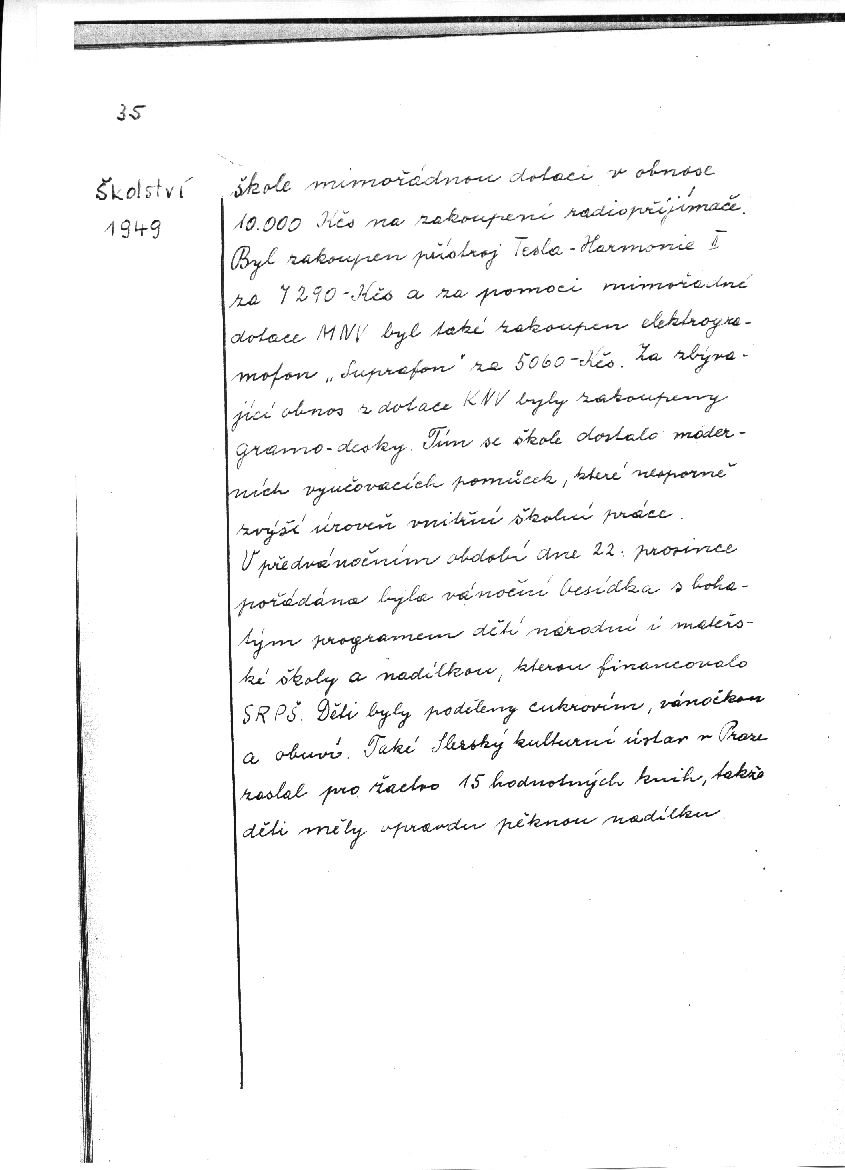 35
Školství
1949
škole mimořádnou dotaci v obnose
10.000 Kčs na zakoupení radiopřijímače.
Byl zakoupen přístroj Tesla-Harmonie II
za 7290-Kčs a za pomoci mimořádné
dotace MNV byl také zakoupen elektrogra-
mofon „Suprafon" za 5060-Kčs. Za zbýva-
jící obnos z dotace KNV byly zakoupeny
gramo-desky. Tím se škole dostalo moder-
ních vyučovacích pomůcek, které nesporně
zvýší úroveň vnitřní školní práce.
V předvánočním období dne 22. prosince
pořádána byla vánoční besídka s boha-
tým programem dětí národní i mateřs-
ké školy a nadílkou, kterou financovalo
SRPŠ. Děti byly poděleny cukrovím, vánočkou
a obuví. Také Slezský kulturní ústav v Praze
zaslal pro žactvo 15 hodnotných knih, takže
děti měly opravdu pěknou nadílku